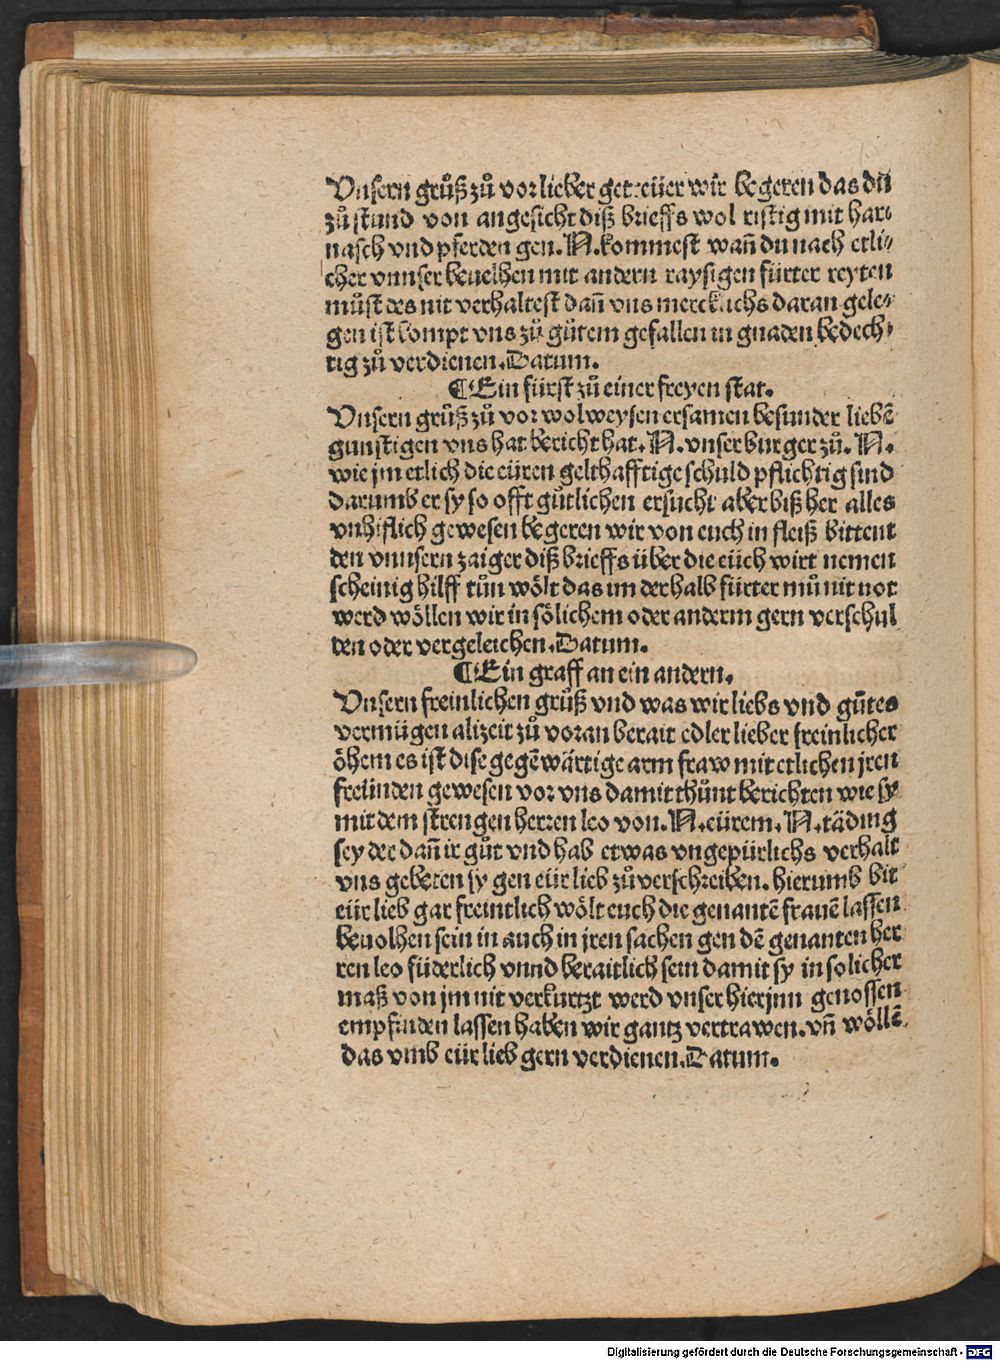 Vnsern grůß zů vor lieber getreüer wir begeren das du
zů stund von angesicht diß brieffs wol ristig mit har⸗
nasch vnd pferden gen. N. kommest wañ du nach etli⸗
cher vnnser beuelhen mit andern raysigen fürter reyten
můst des nit verhaltest dañ vns mercklichs daran gele⸗
gen ist kompt vns zů gůtem gefallen in gnaden bedech⸗
tig zů verdienen. Datum.
¶ Ein fürst zů einer freyen stat.
Vnsern grůß zů vor wolweysen ersamen besunder liebē
gunstigen vns hat bericht hat. N. vnser burger zů. N.
wie jm etlich die eüren gelthafftige schuld pflichtig sind
darumb er sy so offt gůtlichen ersucht aber biß her alles
vnhiflich gewesen begeren wir von euch in fleiß bittent
den vnnsern zaiger diß brieffs über die eüch wirt nemen
scheinig hilff tůn wölt das im derhalb fürter mů nit not
werd wöllen wir in sölichem oder anderm gern verschul
den oder vergeleichen. Datum.
¶ Ein graff an ein andern.
Vnsern freinlichen grůß vnd was wir liebs vnd gůtes
vermügen alizeit zů voran berait edler lieber freinlicher
öhem es ist dise gegēwärtige arm fraw mit etlichen jren
freünden gewesen vor vns damit thůnt berichten wie sy
mit dem strengen herren leo von. N. eürem. N. täding
sey der dañ ir gůt vnd hab etwas vngepürlichs verhalt
vns gebeten sy gen eür lieb zů verschreiben. hierumb bit
eür lieb gar freintlich wölt euch die genantē frauē lassen
beuolhen sein in auch in jren sachen gen dē genanten her
ren leo füderlich vnnd beraitlich sein damit sy in solicher
maß von jm nit verkurtzt werd vnser hierjnn genossen
empfinden lassen haben wir gantz vertrawen. vñ wöllē
das vmb eür lieb gern verdienen. Datum.
Digitalisierung gefördert durch die Deutsche Forschungsgemeinschaft - DFG